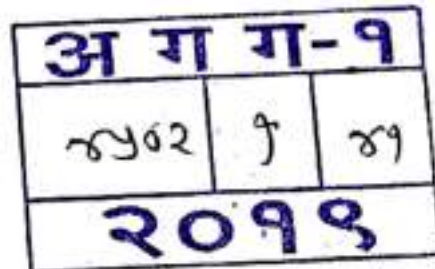 अ ग ग-१
४५०२ १ ४१
२०१९